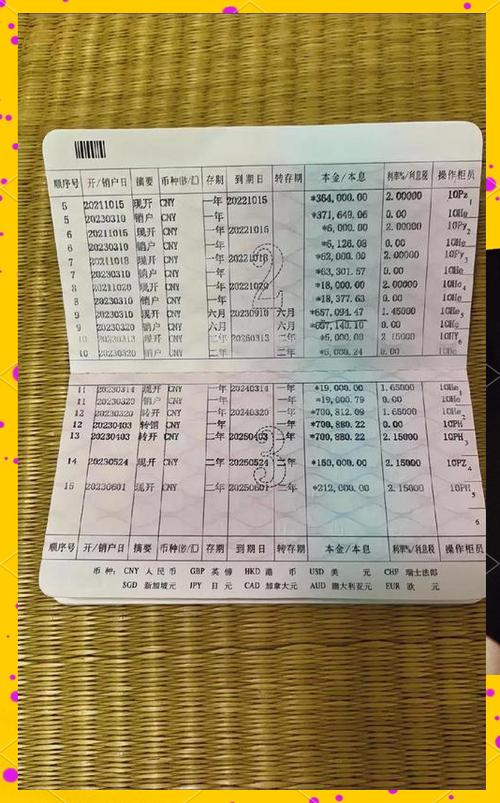 顺序号 开/销户日 摘要 币种(钞/汇) 存期 到期日 转存期 本金/本息 利率%/利息税 操作柜员
5 20211015 现开 CNY 一年 20221015 *364,000.00 2.00000 10Pz 1
5 20230310 销户 CNY 一年 *371,649.06 0.00 10He
6 20211015 现开 CNY 一年 20221015 *6,000.00 2.00000 10Py 2
6 20230310 销户 CNY 一年 *6,126.08 0.00 10He
7 20211018 现开 CNY 一年 20221018 *62,000.00 2.00000 10Py 3
7 20230310 销户 CNY 一年 *63,301.57 0.00 10He
8 20211020 现开 CNY 一年 20221020 *18,000.00 2.00000 10He 4
8 20230310 销户 CNY 一年 *18,377.63 0.00 10He
9 20230310 现开 CNY 六月 20230910 六月 *657,094.47 1.45000 10He 5
9 20230320 销户 CNY 六月 六月 *657,140.10 0.00 10He
10 20230313 现开 CNY 二年 20250313 二年 *5,000.00 2.15000 6
10 20230320 销户 CNY 二年 二年 *5,000.24 0.00 10He
2
11 20230314 现开 CNY 一年 20240314 一年 *19,000.00 1.65000 10He 1
11 20230320 销户 CNY 一年 一年 *19,000.79 0.00 10He
12 20230320 转开 CNY 一年 20240320 一年 *700,812.09 1.65000 10He 2
12 20230403 转销 CNY 一年 一年 *700,880.22 0.00 10PH
13 20230403 转开 CNY 二年 20250403 二年 *700,880.22 2.15000 10PH 3
14 20230524 现开 CNY 二年 20250524 二年 *150,000.00 2.15000 10PZ 4
15 20230601 现开 CNY 二年 20250601 二年 *212,000.00 2.15000 10PH 5
3
6
顺序号 开/销户日 摘要 币种(钞/汇) 存期 到期日 转存期 本金/本息 利率%/利息税 操作柜员
币种: CNY 人民币 GBP 英镑 HKD 港币 USD 美元 CHF 瑞士法郎
SGD 新加坡元 JPY 日元 CAD 加拿大元 AUD 澳大利亚元 EUR 欧元